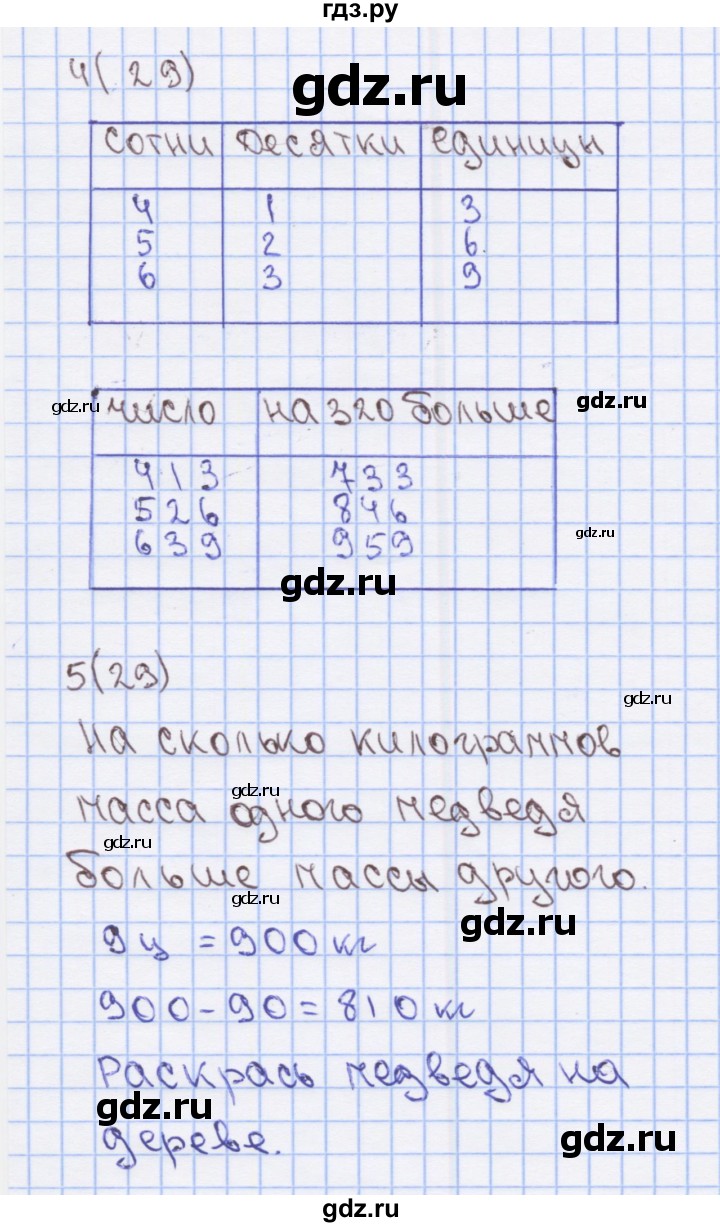 гдз.ру
4(29)
gdz.ru
сотни десятки единицы
4 1 3
5 2 6
6 3 9
gdz.ru
gdz.ru
число на 320 больше
413 733
526 846
639 959
gdz.ru
gdz.ru
5(29)
gdz.ru
На сколько килограммов
gdz.ru
масса одного медведя
gdz.ru
больше массы другого.
gdz.ru
gdz.ru
9 ц = 900 кг
900 - 90 = 810 кг
Раскрась медведя на
gdz.ru
дереве.
gdz.ru
gdz.ru